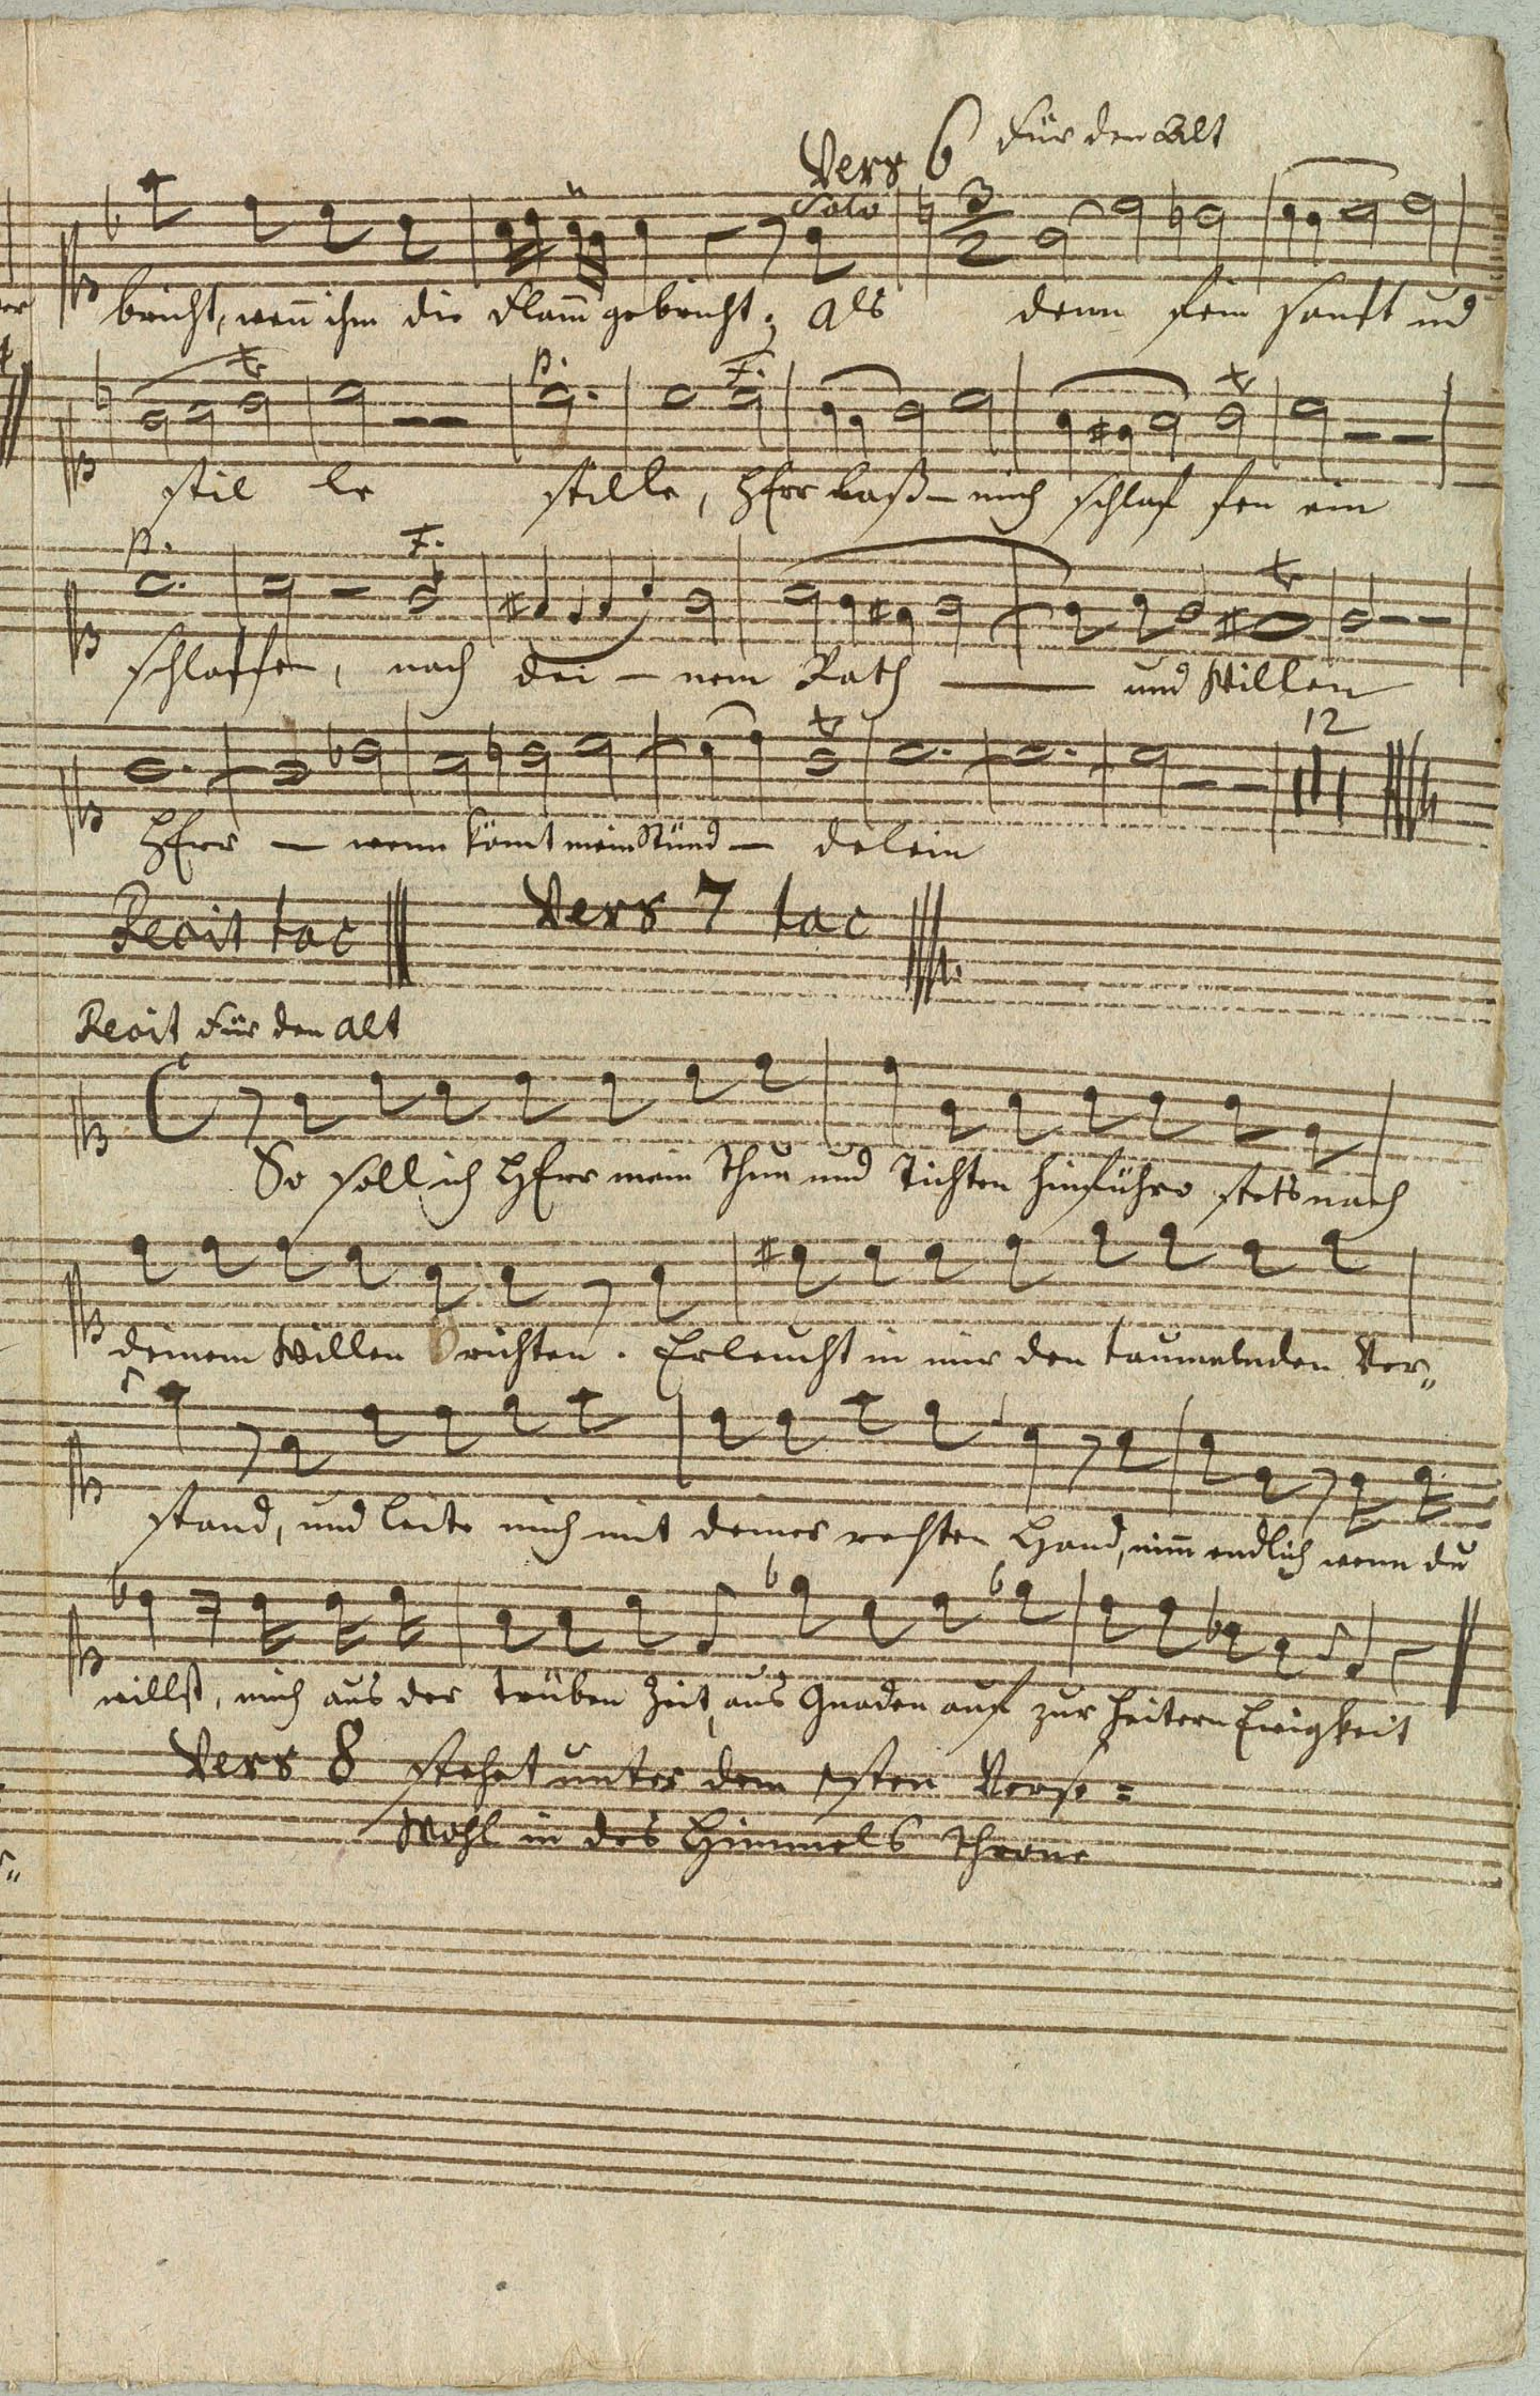 Vers 6 Für den Alt
Solo
bricht, wen̄ ihm die Flam̄ gebricht; Als denn fein sanft und
tr
stil le stille, HErr laß – mich schlaf fen ein
p. F. tr
p. F. tr
schlaffen, nach dei – nem Rath — und Willen
tr 12
HErr – wenn köm̄t mein Stünd – delein
Recit tac Vers 7 tac
Recit Für den Alt
So soll ich HErr mein Thun und Tichten hinführo stets nach
deinem Willen richten. Erleucht in mir den taumelnden Ver„
stand, und leite mich mit deiner rechten Hand, nim̄ endlich wenn du
willst, mich aus der trüben Zeit, aus Gnaden auf zur heitern Ewigkeit
Vers 8 stehet unter dem 1sten Verse =
Wohl in des Himmels Throne